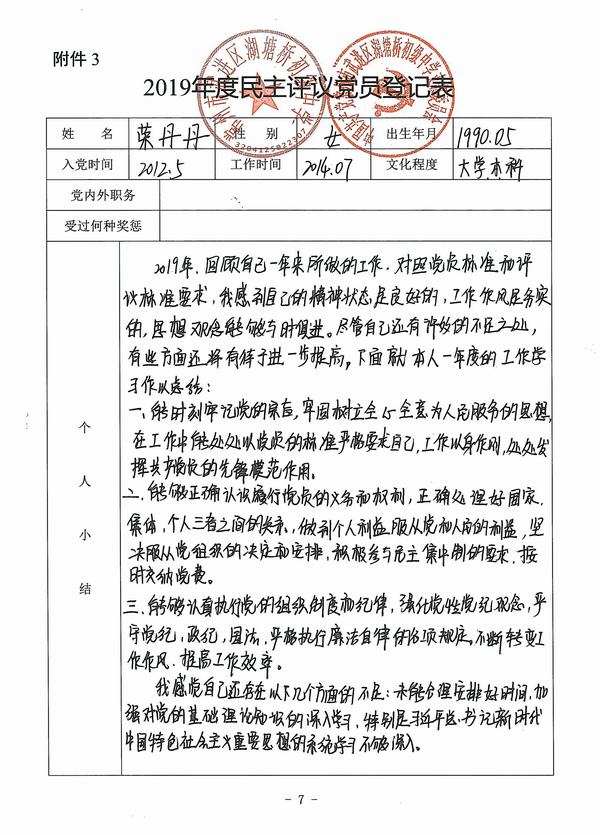 附件 3
2019年度民主评议党员登记表
姓 名 荣丹丹 性 别 女 出生年月 1990.05
入党时间 2012.5 工作时间 2014.07 文化程度 大学本科
党内外职务
受过何种奖惩
个人小结
2019年，回顾自己一年来所做的工作，对照党员标准和评
议标准要求，我感到自己的精神状态是良好的，工作作风是务实
的，思想观念能够与时俱进。尽管自己还有许多的不足之处，
有些方面还将有待于进一步提高，下面就本人一年度的工作学
习作以总结：
一、能时刻牢记党的宗旨，牢固树立全心全意为人民服务的思想，
在工作中能处处以党员的标准严格要求自己，工作以身作则，处处发
挥共产党员的先锋模范作用。
二、能够正确认识履行党员的义务和权利，正确处理好国家、
集体、个人三者之间的关系，做到个人利益服从党和人民的利益，坚
决服从党组织的决定和安排，积极参与民主集中制的要求，按
时交纳党费。
三、能够认真执行党的组织制度和纪律，强化党性党纪观念，严
守党纪，政纪，国法，严格执行廉洁自律的各项规定，不断转变工
作作风，提高工作效率。
我感觉自己还存在以下几个方面的不足：未能合理安排好时间，加
强对党的基础理论知识的深入学习，特别是习近平总书记新时代
中国特色社会主义重要思想的系统学习不够深入。
- 7 -
3204125022307